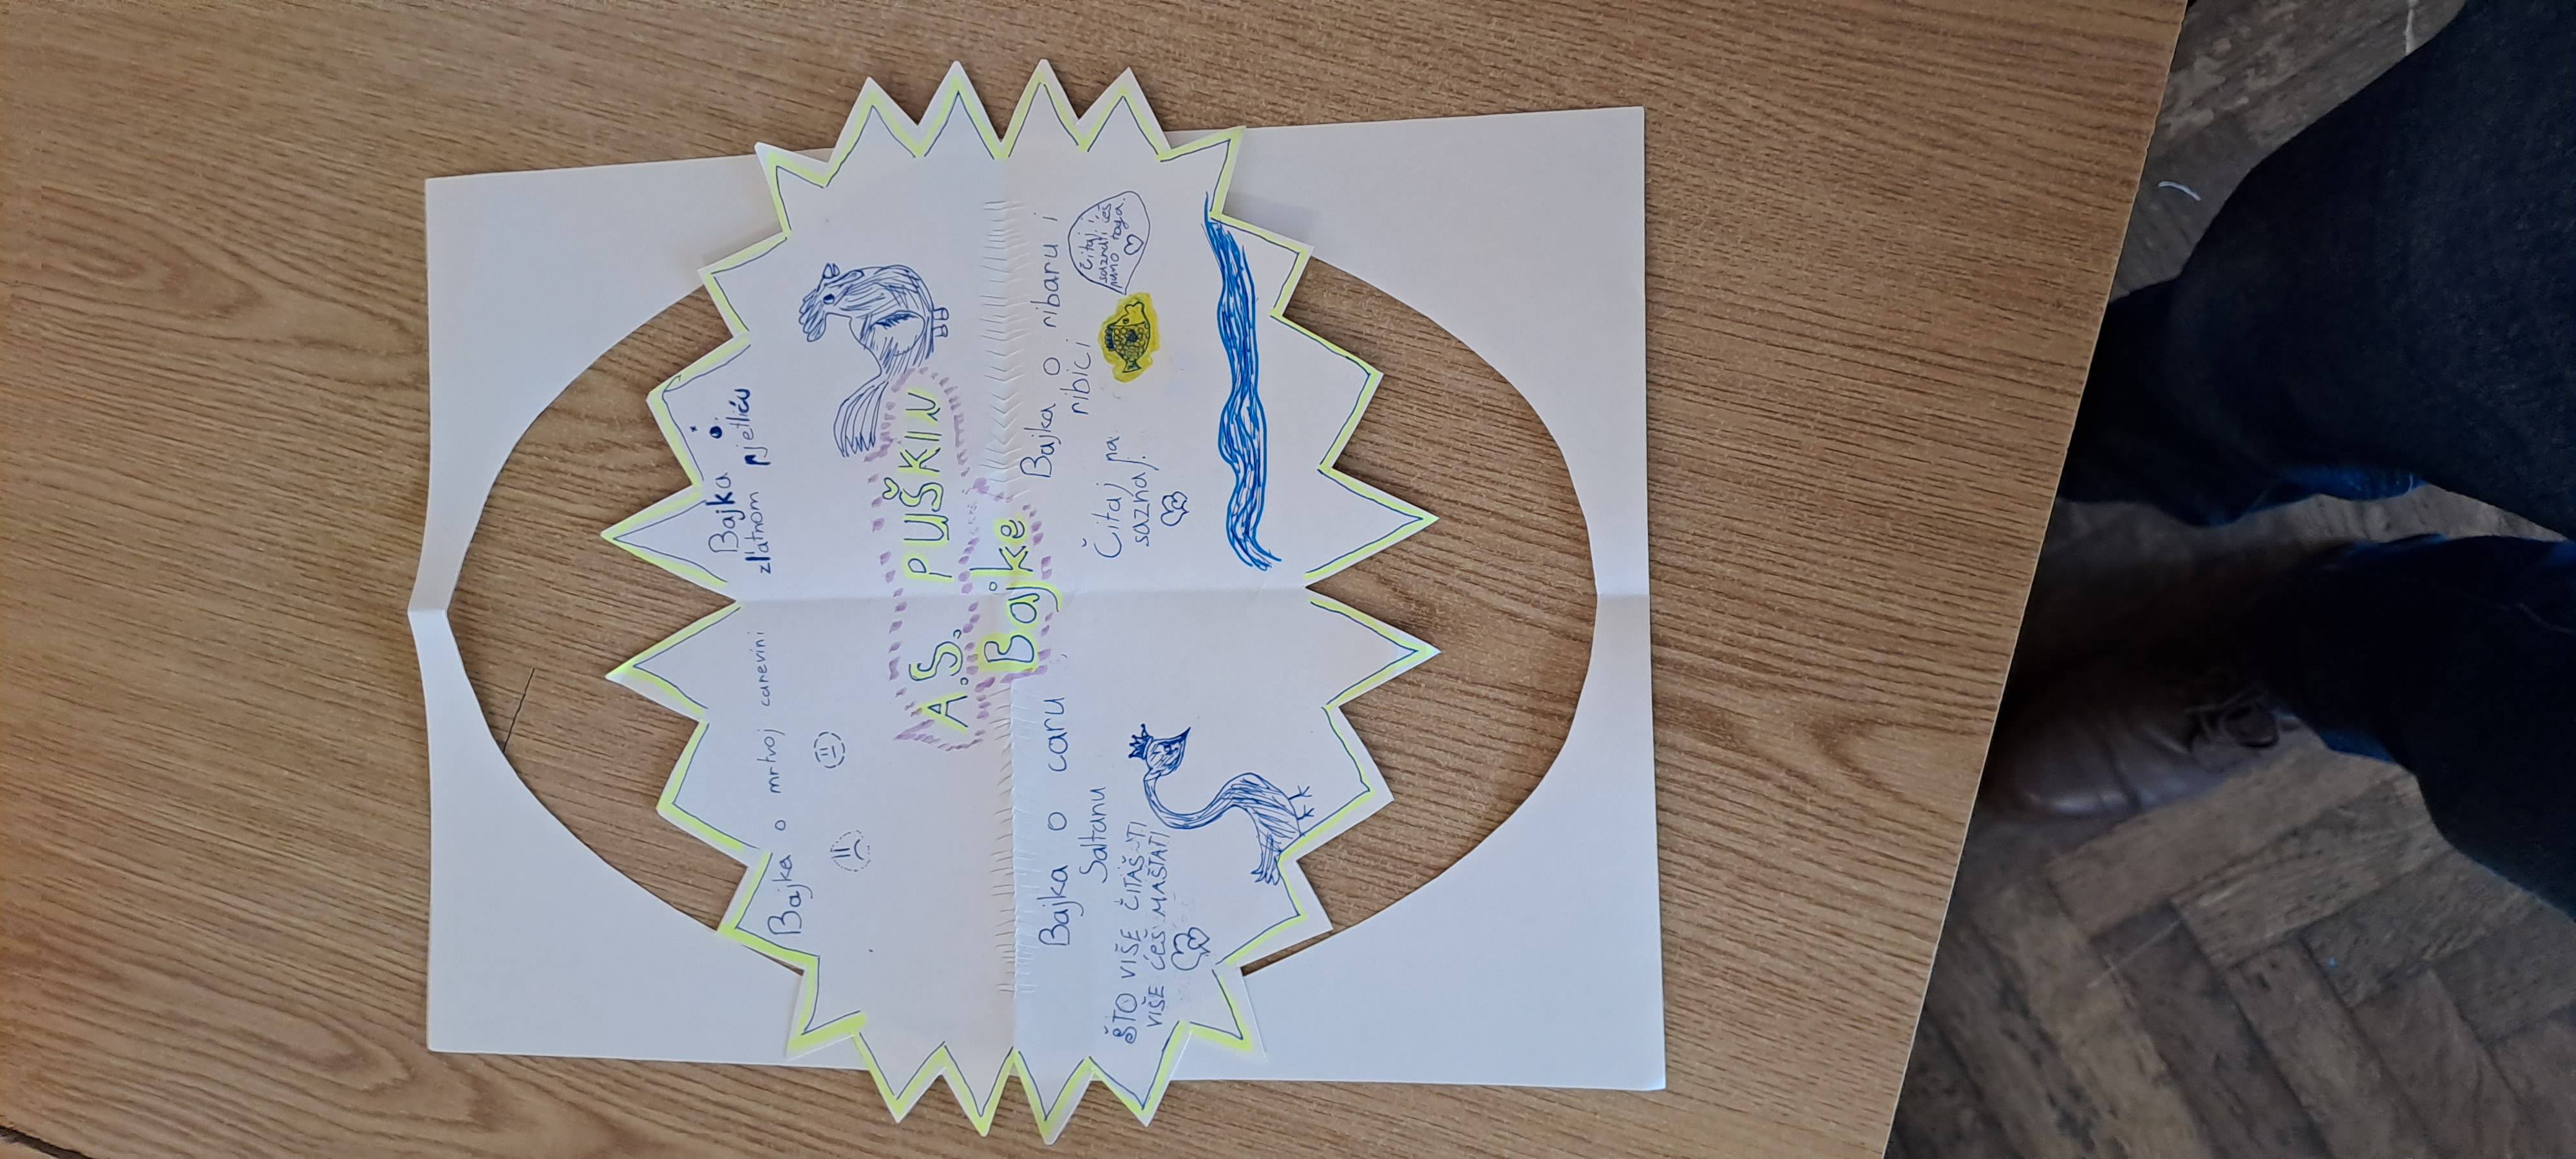 Bajka o mrtvoj carevini
Bajka o
zlatnom pjetliću
A.S. PUŠKIN
Bajke
Bajka o caru
Saltanu
ŠTO VIŠE ČITAŠ TI
VIŠE ĆEŠ MAŠTATI
Bajka o ribaru i
ribici
Čitaj pa
saznaj.
Čitaj i
saznati ćeš
puno toga.